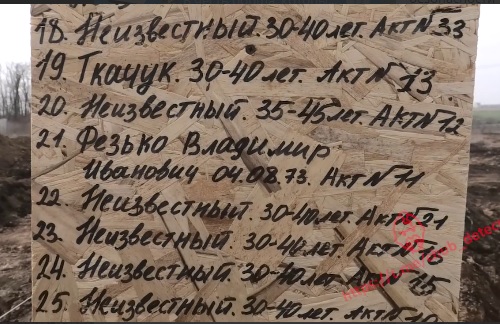 18. Неизвестный. 30-40 лет. Акт №33
19. Ткачук. 30-40 лет. Акт №13
20. Неизвестный. 35-45 лет. Акт №12
21. Фезько Владимир
Иванович 04.08.73. Акт №11
22. Неизвестный. 30-40 лет. Акт №21
23. Неизвестный. 30-40 лет. Акт №16
24. Неизвестный. 30-40 лет. Акт №15
25. Неизвестный. 30-40 лет. Акт